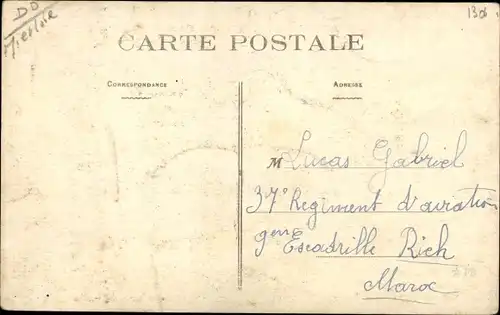 DD
130
CARTE POSTALE
CORRESPONDANCE
ADRESSE
M Lucas Gabriel
37e Regiment d'aviation
9em Escadrille Rich
Maroc